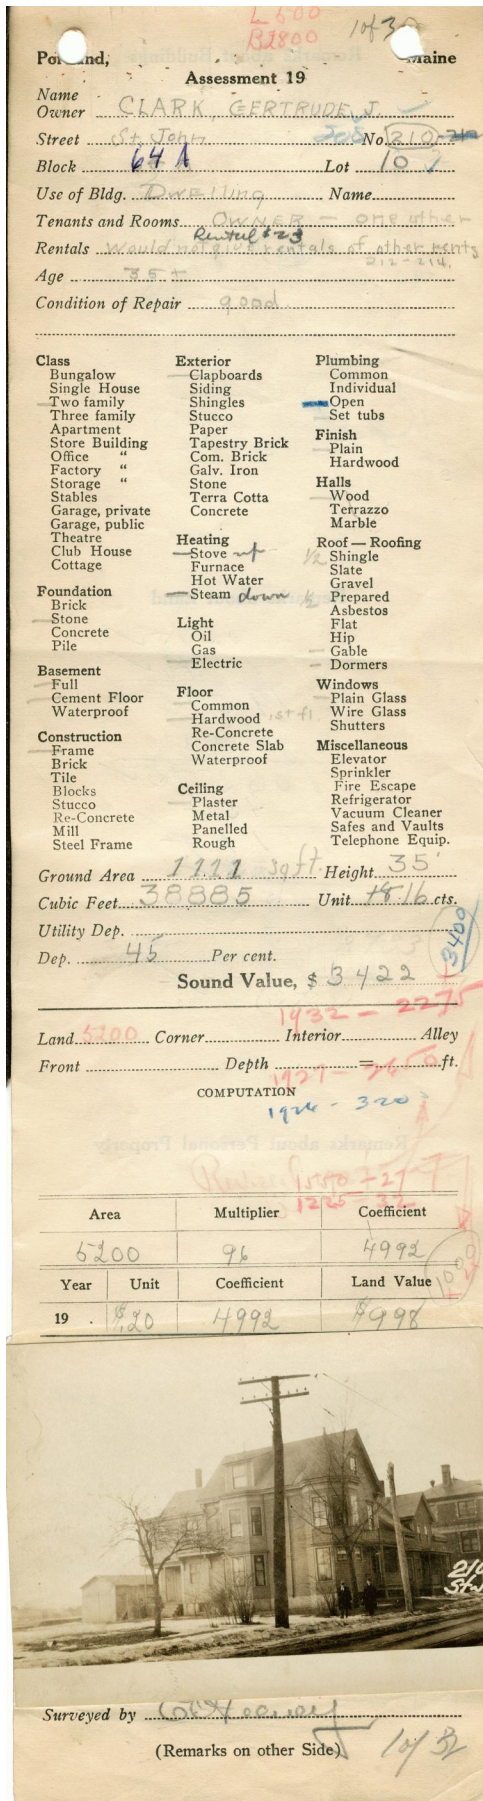 L 600
B2800
1 of 3
Portland, Maine
Assessment 19
Name
Owner CLARK, GERTRUDE, J.
Street St. John 208 No. 210-212
Block 64 A Lot 10
Use of Bldg. Dwelling Name
Tenants and Rooms OWNER — one other
Rental $23
Rentals would not give rentals of other rents
212-214.
Age 35+
Condition of Repair good
Class
Bungalow
Single House
Two family
Three family
Apartment
Store Building
Office "
Factory "
Storage "
Stables
Garage, private
Garage, public
Theatre
Club House
Cottage
Foundation
Brick
Stone
Concrete
Pile
Basement
Full
Cement Floor
Waterproof
Construction
Frame
Brick
Tile
Blocks
Stucco
Re-Concrete
Mill
Steel Frame
Exterior
Clapboards
Siding
Shingles
Stucco
Paper
Tapestry Brick
Com. Brick
Galv. Iron
Stone
Terra Cotta
Concrete
Heating
Stove up
Furnace
Hot Water
Steam down
Light
Oil
Gas
Electric
Floor
Common
Hardwood 1st fl.
Re-Concrete
Concrete Slab
Waterproof
Ceiling
Plaster
Metal
Panelled
Rough
Plumbing
Common
Individual
Open
Set tubs
Finish
Plain
Hardwood
Halls
Wood
Terrazzo
Marble
Roof — Roofing
½ Shingle
Slate
Gravel
½ Prepared
Asbestos
Flat
Hip
Gable
Dormers
Windows
Plain Glass
Wire Glass
Shutters
Miscellaneous
Elevator
Sprinkler
Fire Escape
Refrigerator
Vacuum Cleaner
Safes and Vaults
Telephone Equip.
Ground Area 1111 sq ft. Height 35'
Cubic Feet 38885 Unit 18 16 cts.
Utility Dep.
Dep. 45 Per cent.
3400
Sound Value, $ 3422
1932 - 2275
Land 5200 Corner Interior Alley
Front Depth = ft.
1927 - 2650
COMPUTATION
1926 - 320
Area Multiplier Coefficient
5200 96 4992
Year Unit Coefficient Land Value
1000
19 . $.20 4992 $998
210
Surveyed by
(Remarks on other Side)
1 of 3